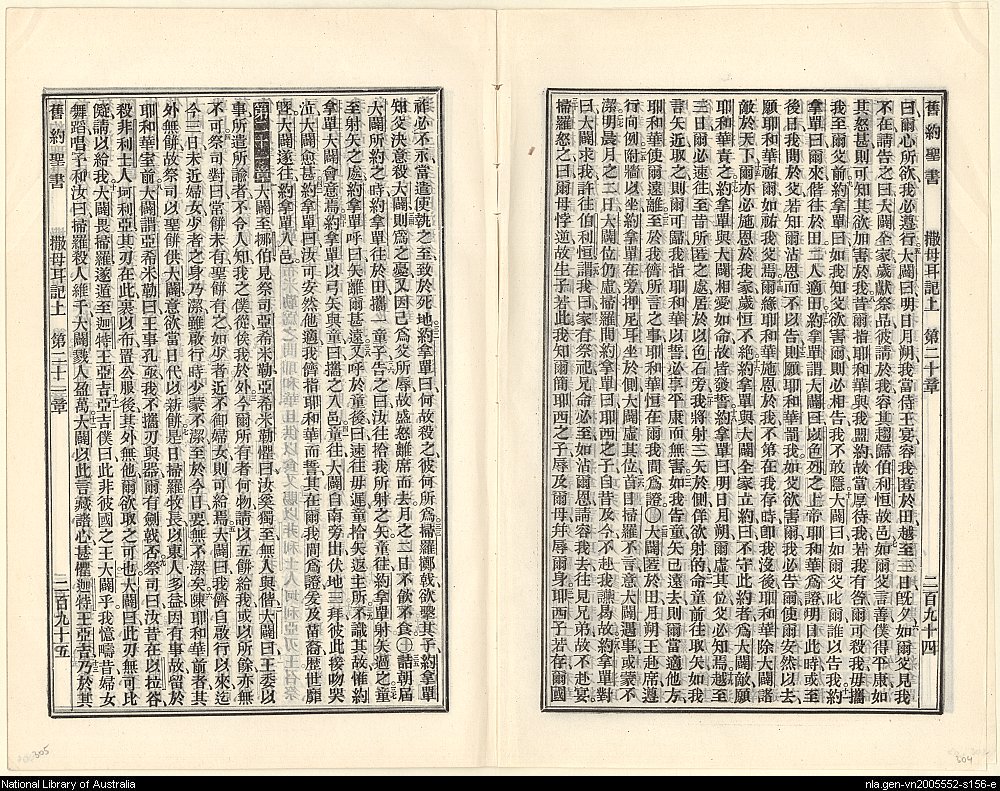 舊約聖書 撒母耳記上 第二十章 二百九十四
曰爾心所欲我必遵行大闢曰明日月朔我當侍王宴容我匿於田越至三日旣夕如爾父見我
不在請告之曰大闢全家歲獻祭品彼請於我容其趨歸伯利恒故邑如爾父言善僕得平康如
其怒甚則可知其欲加害於我昔爾指耶和華與我盟約故當厚待我若我有咎爾可殺我毋攜
我至爾父前約拿單曰如我知父欲害爾則必相告我不敢隱大闢曰如爾父叱爾誰以告我約
拿單曰爾來偕往於田二人適田約拿單謂大闢曰以色列之上帝耶和華爲證明日此時或至
後日我問於父若知爾沾恩而不以告則願耶和華罰我如父欲害爾我必告爾使爾安然以去
願耶和華祐爾如祐我父焉爾緣耶和華施恩於我不第在我存時卽我沒後耶和華除大闢諸
敵於天下爾亦必施恩於我家歲恒不絶約拿單與大闢全家立約曰不守此約者爲大闢敵願
耶和華責之約拿單與大闢相愛如命故皆發誓約拿單曰明日月朔爾虛其位父必知焉越至
三日爾必速往至昔所匿之處居於以色石旁我將射三矢於側佯欲射的命童前往取矢如我
言矢近取之則爾可歸我指耶和華以誓必享平康而無害如我告童矢已遠去則爾當適他方
耶和華使爾遠離至於我儕所言之事耶和華恒在爾我間爲證○大闢匿於田月朔王赴席遵
行向例附牆以坐約拿單在旁押尼耳坐於側大闢虛其位首日掃羅不言意大闢遇事或蒙不
潔明晨月之二日大闢位仍虛掃羅問約拿單曰耶西之子自昔及今不赴我讌曷故約拿單對
曰大闢求我許往伯利恒謂我曰我家有祭祀兄命我必至如沾爾恩請容我去往見兄弟故不赴宴
掃羅怒之曰爾母悖逆故生子若此我知爾簡耶西之子辱及爾母并辱爾身耶西子若存爾國
祚必不永當遣使執之至致於死地約拿單曰何故殺之彼何所爲掃羅擲戟欲擊其子約拿單
知父決意殺大闢則爲之憂又因己爲父所辱故盛怒離席而去月之二日不欲不食○詰朝屆
大闢所約之時約拿單往於田攜一童子告之曰汝往拾我所射之矢童往約拿單射矢過之童
至射矢之處約拿單呼曰矢離爾甚遠又呼於童後曰速往毋遲童拾矢返主所不識其故惟約
拿單大闢會意焉約拿單以弓矢與童曰攜之入邑童往大闢自南旁出伏地三拜彼此接吻哭
泣大闢愈甚約拿單曰汝可安然他適我儕指耶和華而誓其在爾我間爲證爰及苗裔歷世靡
曁大闢遂往約拿單入邑
第二十一章大闢至挪伯見祭司亞希米勒亞希米勒懼曰汝奚獨至無人與偕大闢曰王委以
事所遣所諭者不令人知我之僕從俟我於外今爾所有者何物請以五餅給我或以所餘亦無
不可祭司對曰常餅未有聖餅有之如少者近不御婦女則可給焉大闢曰我儕自啟行以來迄
今三日未近婦女少者之身乃潔雖啟行時少蒙不潔至於今日要無不潔矣陳耶和華前者其
外無餅故祭司以聖餅供大闢意欲當日代以新餅是日掃羅牧長以東人多益因有事故留於
耶和華室前大闢請亞希米勒曰王事孔亟我不攜刃與器爾有劍戟否祭司曰汝昔在以拉谷
殺非利士人坷利亞其刃在此裹以布置公服後其外無他爾欲取之可也大闢曰此刃無可比
儗請以給我大闢畏掃羅遂遁至迦特王亞吉亞吉僕曰此非彼國之王大闢乎我憶疇昔婦女
舞蹈唱予和汝曰掃羅殺人維千大闢戮人盈萬大闢以此言藏諸心甚懼迦特王亞吉乃於其
舊約聖書 撒母耳記上 第二十一章 二百九十五
305
304
National Library of Australia
nla.gen-vn2005552-s156-e